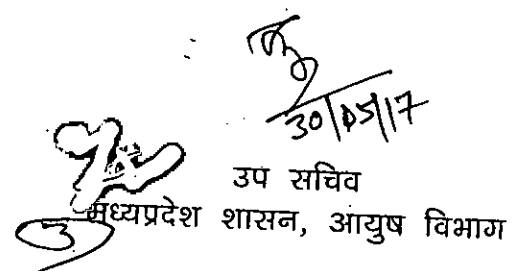 30/05/17
उप सचिव
मध्यप्रदेश शासन, आयुष विभाग